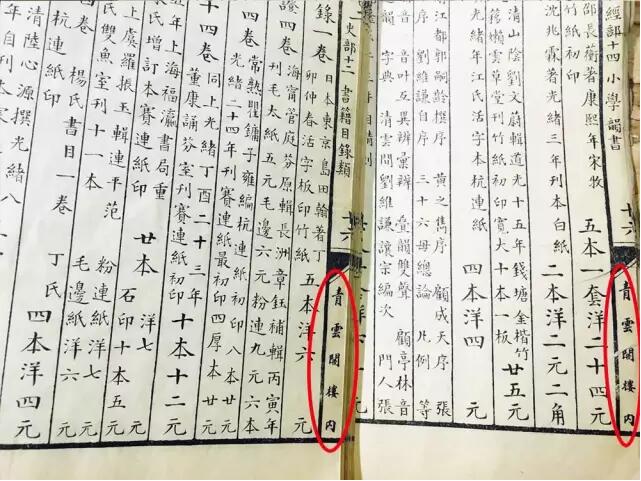 經部十四小學韻書 十六 青雲閣樓內
邵長蘅著康熙年宋牧
竹紙初印 五本一套洋二十四元
沈兆霖著光緒三年刊本白紙 二本洋二元二角
清山陰劉文蔚輯道光十五年錢塘金楷竹
筠嬾雲草堂刊竹紙初印寬大十本一板 廿五元
光緒年江氏活字本杭連紙 四本洋四 元
江都郭元釪撰序 黃之雋序 顧成天序 張
序 劉維謙自序 三十六母總論 凡例 等
音叶互異辨 疊韻雙聲 顧亭林音
韻 字典 清雲間劉維謙讓宗編次 門人張
史部十二 書籍目錄類 十六 青雲閣樓內
錄一卷 日本東京島田翰著丁
卯仲春活字板印竹紙 五本洋六 元
證四卷 海甯管庭芬原輯長洲章鈺補輯丙寅年
刊毛太紙五元毛邊六元粉連九元六本
四卷 常熟瞿鏞子雍編杭連紙初印 八本廿 元
光緒二十四年刊賽連紙最初印四厚本 廿元
十四卷 同上光緒丁酉二十三年
董康誦芬室刊賽連紙初印 十本十二元
五年上海福瀛書局重
氏增訂本賽連紙印 廿本 洋七 元
上虞羅振玉輯連平范 石印十本五元
氏雙魚室刊十一本 粉連紙洋七
毛邊紙洋六 元
四卷 楊氏書目一卷
杭連紙印 丁氏 四本洋四元
清陸心源撰光緒八